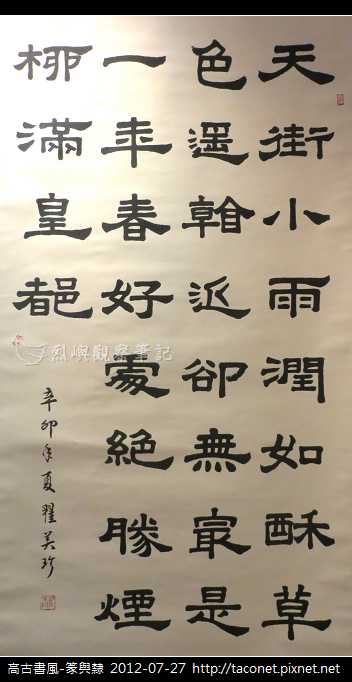 天街小雨潤如酥草
色遙看近卻無最是
一年春好處絕勝煙
柳滿皇都
辛卯年夏翟美珍
烈嶼觀察筆記
高古書風-篆與隸 2012-07-27 http://taconet.pixnet.net